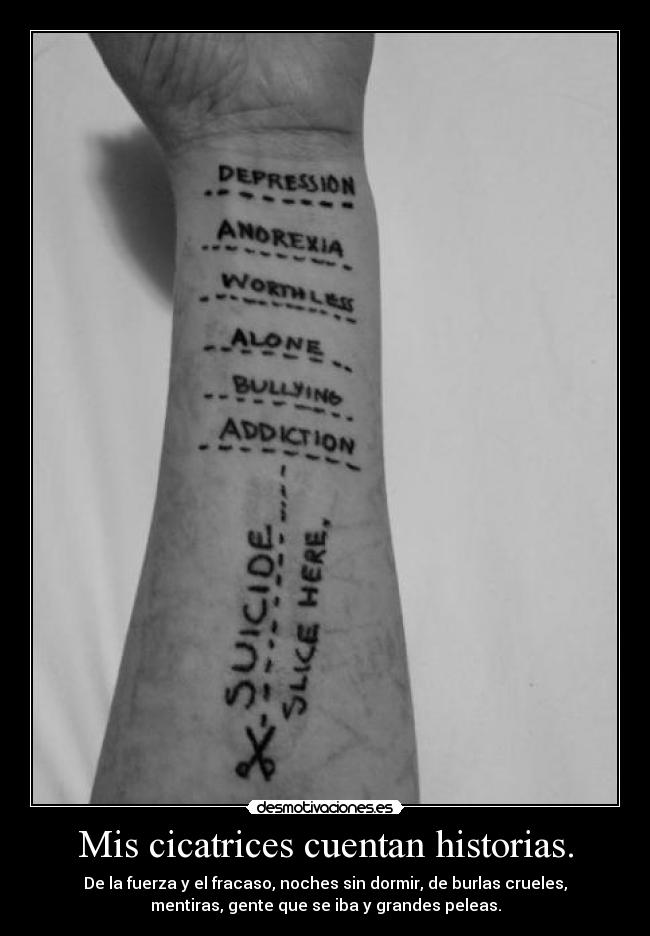 DEPRESSION
ANOREXIA
WORTHLESS
ALONE
BULLYING
ADDICTION
SUICIDE
SLICE HERE,
desmotivaciones.es
Mis cicatrices cuentan historias.
De la fuerza y el fracaso, noches sin dormir, de burlas crueles,
mentiras, gente que se iba y grandes peleas.